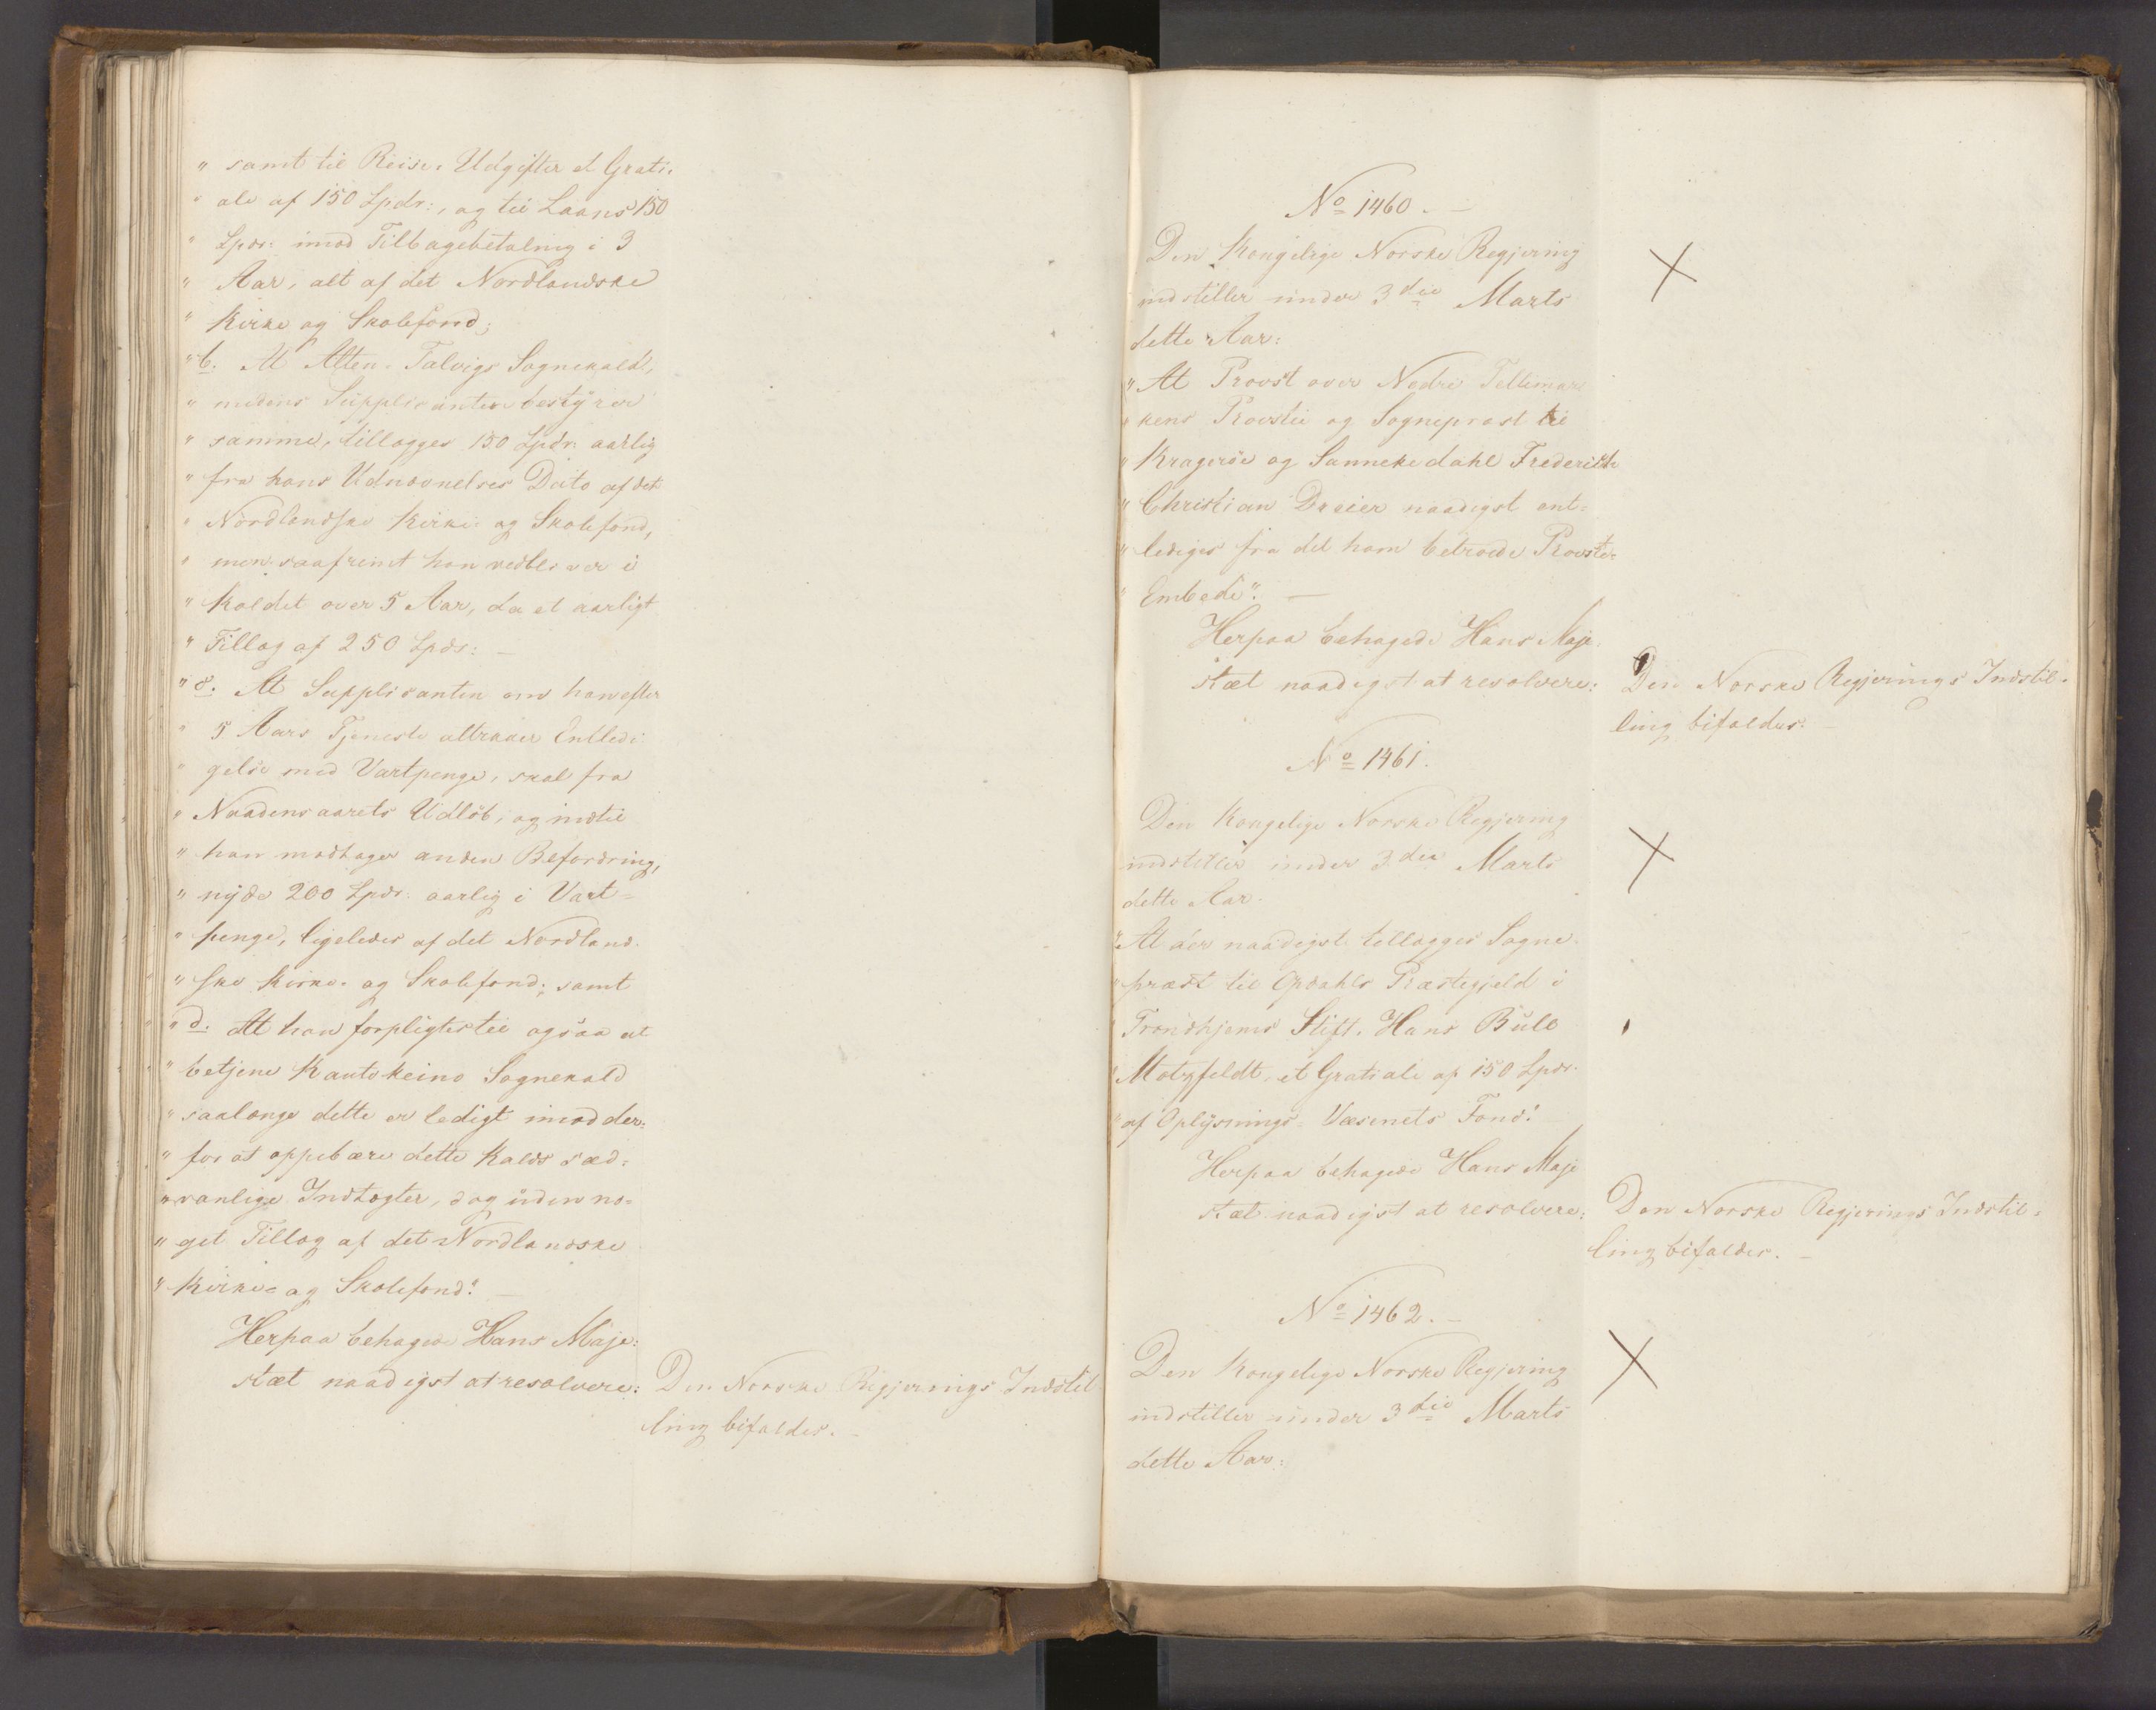 " samt til Reise-Udgifter et Grati-
" ale af 150 Spdr:, og til Laans 150
" Spdr: imod Tilbagebetaling i 3
" Aar, alt af det Nordlandske
" Kirke og Skolefond;
" b. At Alten-Talvigs Sognekald,
" medens Supplicanten bestyrer
" samme, tillægges 150 Spdr: aarlig
" fra hans Udnævnelses Dato af det
" Nordlandske Kirke- og Skolefond,
" men saafremt han vedbliver i
" Kaldet over 5 Aar, da et aarligt
" Tillæg af 250 Spdr: —
" c. At Supplicanten om han efter
" 5 Aars Tjeneste attraaer Entledi-
" gelse med Vartpenge, skal fra
" Naadensaarets Udløb, og indtil
" han modtager anden Befordring,
" nyde 200 Spdr: aarlig i Vart-
" penge, ligeledes af det Nordland-
" ske Kirke- og Skolefond; samt
" d. At han forpligtes til ogsaa at
" betjene Kautokeino Sognekald
" saalænge dette er ledigt imod der-
" for at oppebære dette Kalds sæd-
" vanlige Indtægter, dog uden no-
" get Tillæg af det Nordlandske
" Kirke- og Skolefond." —
Herpaa behagede Hans Maje-
stæt naadigst at resolvere:
Den Norske Regjerings Indstil-
ling bifaldes. —
No 1460. —
Den Kongelige Norske Regjering
indstiller under 3die Marts
dette Aar:
" At Provst over Nedre Tellemar-
" kens Provstie og Sognepræst til
" Kragerøe og Sannekedahl Frederich
" Christian Dreier naadigst ent-
" lediges fra det ham betroede Provste-
" Embede". —
Herpaa behagede Hans Maje-
stæt naadigst at resolvere:
Den Norske Regjerings Indstil-
ling bifaldes. —
No 1461.
Den Kongelige Norske Regjering
indstiller under 3die Marts
dette Aar.
" At der naadigst tillægges Sogne-
" præst til Opdahls Præstegjeld i
" Trondhjems Stift, Hans Bull
" Motzfeldt, et Gratiale af 150 Spdr.
" af Oplysnings-Væsenets Fond."
Herpaa behagede Hans Maje
stæt naadigst at resolvere:
Den Norske Regjerings Indstil-
ling bifaldes. —
No 1462. —
Den Kongelige Norske Regjering
indstiller under 3die Marts
dette Aar: